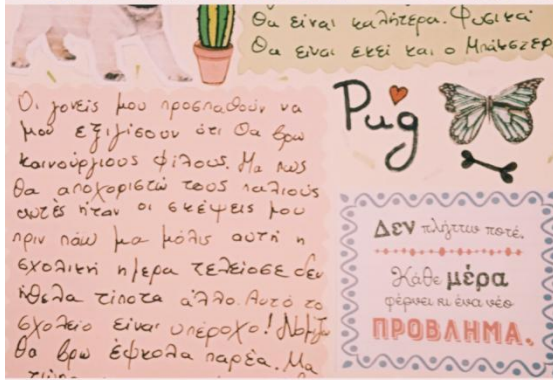 Θα είναι καλήτερα. Φυσικά
Θα είναι εκεί και ο Μπάκστερ
Οι γονείς μου προσπαθούν να
μου εξιγίσουν ότι θα βρω
καινούργιους φίλους. Μα πως
θα αποχοριστώ τους παλιούς
αυτές ήταν οι σκέψεις μου
πριν πάω μα μόλις αυτή η
σχολική ημερα τελείοσε δεν
ήθελα τίποτα άλλο. Αυτό το
σχολείο είναι υπέροχο! Νομίζω
θα βρω έφκολα παρέα. Μα
Pug
Δεν πλήττω ποτέ.
Κάθε μέρα
φέρνει κι ένα νέο
ΠΡΟΒΛΗΜΑ.